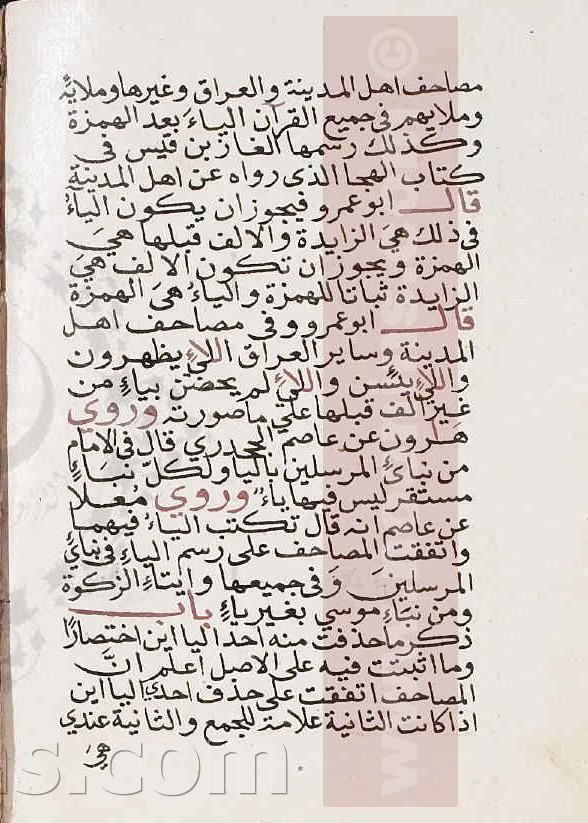 مصاحف اهل المدينة والعراق وغيرها وملائه
وملايهم في جميع القرآن الياء بعد الهمزة
وكذلك رسمها الغاز بن قيس في
كتاب الهجا الذى رواه عن اهل المدينة
قال ابو عمرو فيجوز ان يكون الياءُ
فى ذلك هىَ الزايدة والالف قبلها هىَ
الهمزة ويجوز ان تكون الالف هىَ
الزايدة ثباتا للهمزة والياءُ هىَ الهمزة
قال ابو عمرو وفي مصاحف اهل
المدينة وساير العراق اللاءِ يظهرون
واللاءِ يئسن واللاءِ لم يحضن بياءٍ من
غير الف قبلها على ما صورته وروى
هارون عن عاصم الجحدري قال فى الامام
من نبائ المرسلين باليا ولكل نباءٍ
مستقر ليس فيها ياءٌ وروي معلا
عن عاصم انه قال تكتب الياءُ فيهما
واتفقت المصاحف على رسم الياءِ في نباىِٕ
المرسلين وَفى جميعها وايتاءِ الزكوة
ومن نباءِ موسي بغير ياءٍ باب
ذكر ما حذفت منه احد اليا اين اختصارًا
وما اثبتت فيه على الاصل اعلم انَّ
المصاحف اتفقت على حذف احدى اليا اين
اذا كانت الثانية علامة للجمع والثانية عندي
هىَ
ns.com
©
www.